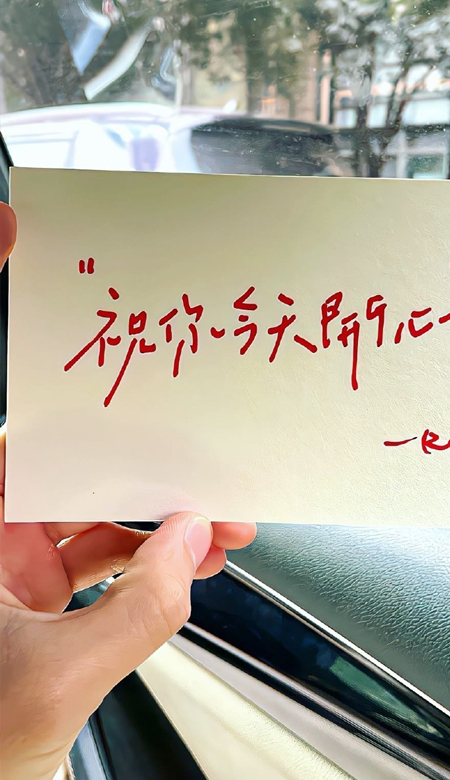 "祝你今天開心
—R